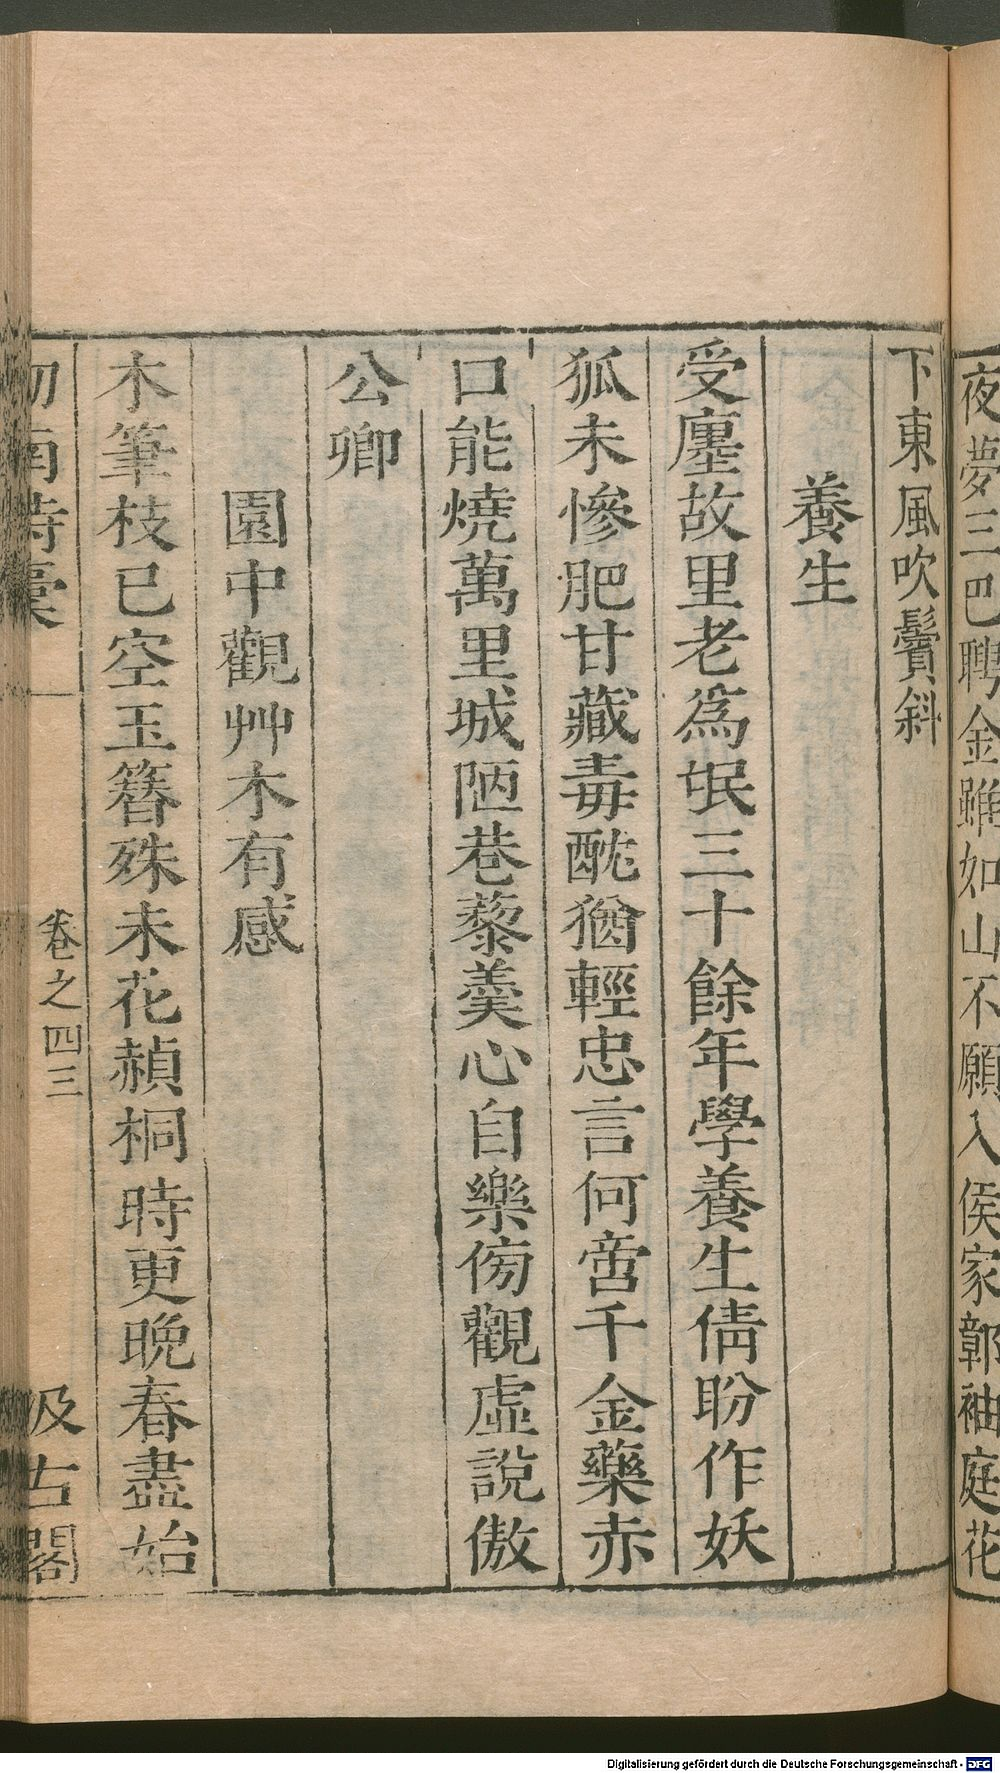 夜夢三巴聘金雖如山不願入侯家鄣袖庭花
下東風吹鬢斜
養生
受廛故里老爲氓三十餘年學養生倩盼作妖
狐未慘肥甘藏毒酖猶輕忠言何啻千金藥赤
口能燒萬里城陋巷藜羹心自樂傍觀虛說傲
公卿
園中觀艸木有感
木筆枝已空玉簪殊未花赬桐時更晚春盡始
劒南詩稾
卷之四三
汲古閣
Digitalisierung gefördert durch die Deutsche Forschungsgemeinschaft - DFG